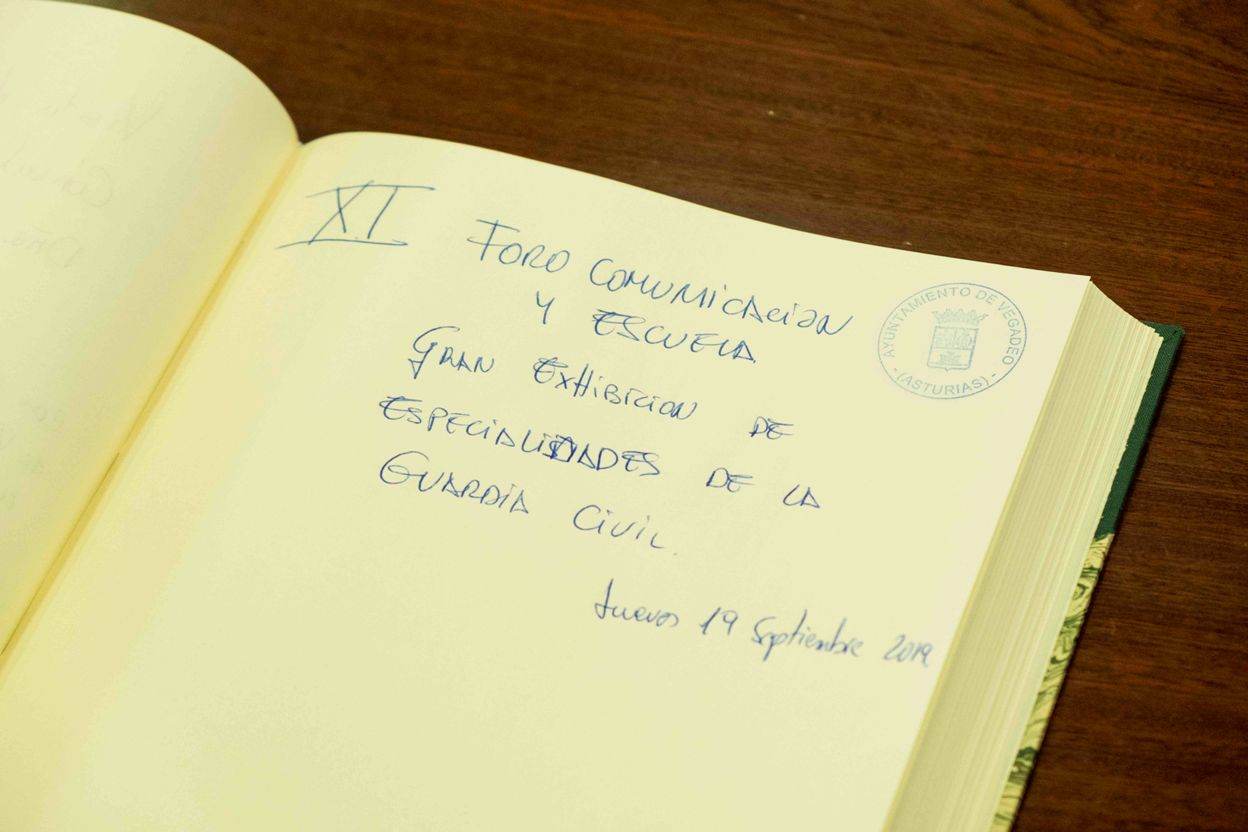 XI FORO COMUNICACION
Y ESCUELA
GRAN EXHIBICION DE
ESPECIALIDADES DE LA
GUARDIA CIVIL.
Jueves 19 Septiembre 2019
AYUNTAMIENTO DE VEGADEO
- (ASTURIAS) -